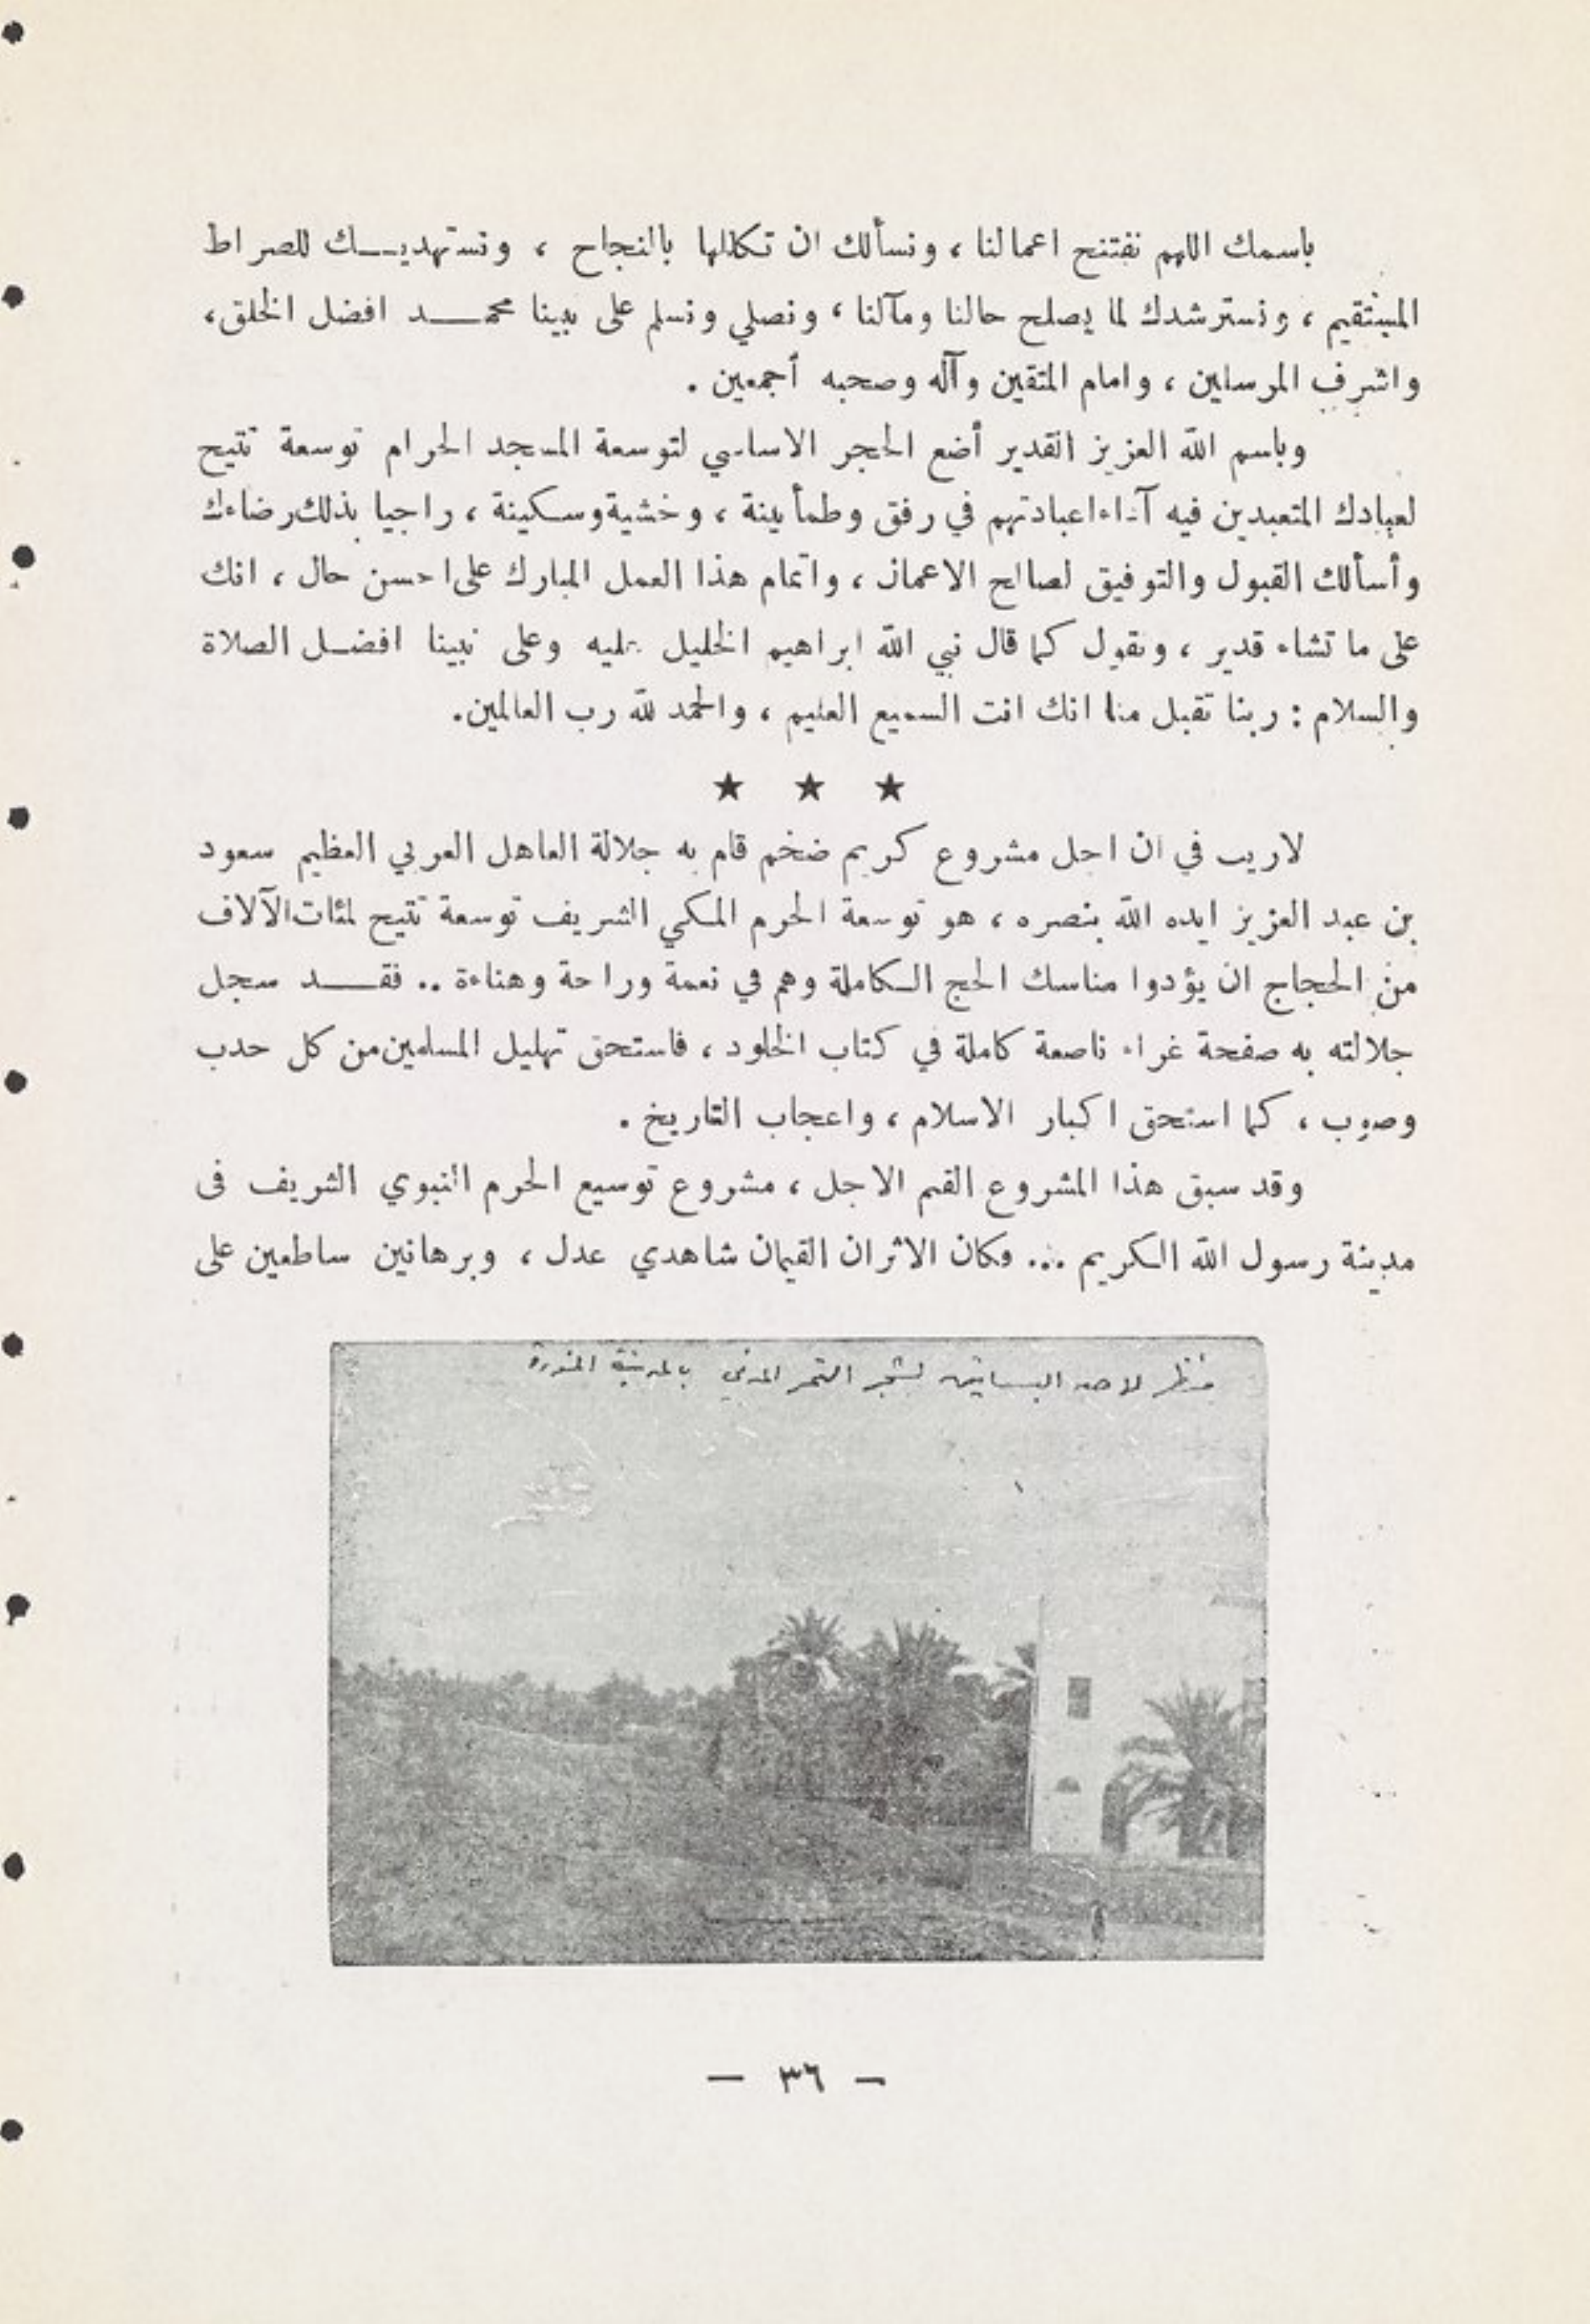 باسمك اللهم نفتتح اعمالنا ، ونسألك ان تكللها بالنجاح ، ونستهديـــك للصراط
المستقيم ، ونسترشدك لما يصلح حالنا ومآلنا ، ونصلي ونسلم على نبينا محمـــد افضل الخلق،
واشرف المرسلين ، وامام المتقين وآله وصحبه أجمعين .
وباسم الله العزيز القدير أضع الحجر الاساسي لتوسعة المسجد الحرام توسعة تتيح
لعبادك المتعبدين فيه آداء اعبادتهم في رفق وطمأنينة ، وخشية وسكينة ، راجيا بذلك رضاءك
وأسألك القبول والتوفيق لصالح الاعمال ، واتمام هذا العمل المبارك على احسن حال ، انك
على ما تشاء قدير ، ونقول كما قال نبي الله ابراهيم الخليل عليه وعلى نبينا افضــل الصلاة
والسلام : ربنا تقبل منا انك انت السميع العليم ، والحمد لله رب العالمين.
★ ★ ★
لاريب في ان اجل مشروع كريم ضخم قام به جلالة العاهل العربي العظيم سعود
بن عبد العزيز ايده الله بنصره ، هو توسعة الحرم المكي الشريف توسعة تتيح لمئات الآلاف
من الحجاج ان يؤدوا مناسك الحج الكاملة وهم في نعمة وراحة وهناءة .. فقـــد سجل
جلالته به صفحة غراء ناصعة كاملة في كتاب الخلود ، فاستحق تهليل المسلمين من كل حدب
وصوب ، كما استحق اكبار الاسلام ، واعجاب التاريخ .
وقد سبق هذا المشروع القيم الاجل ، مشروع توسيع الحرم النبوي الشريف فى
مدينة رسول الله الكريم ... فكان الاثران القيمان شاهدي عدل ، وبرهانين ساطعين على
منظر لاحد البساتين لشجر التمر المدني بالمدينة المنورة
— ٣٦ —